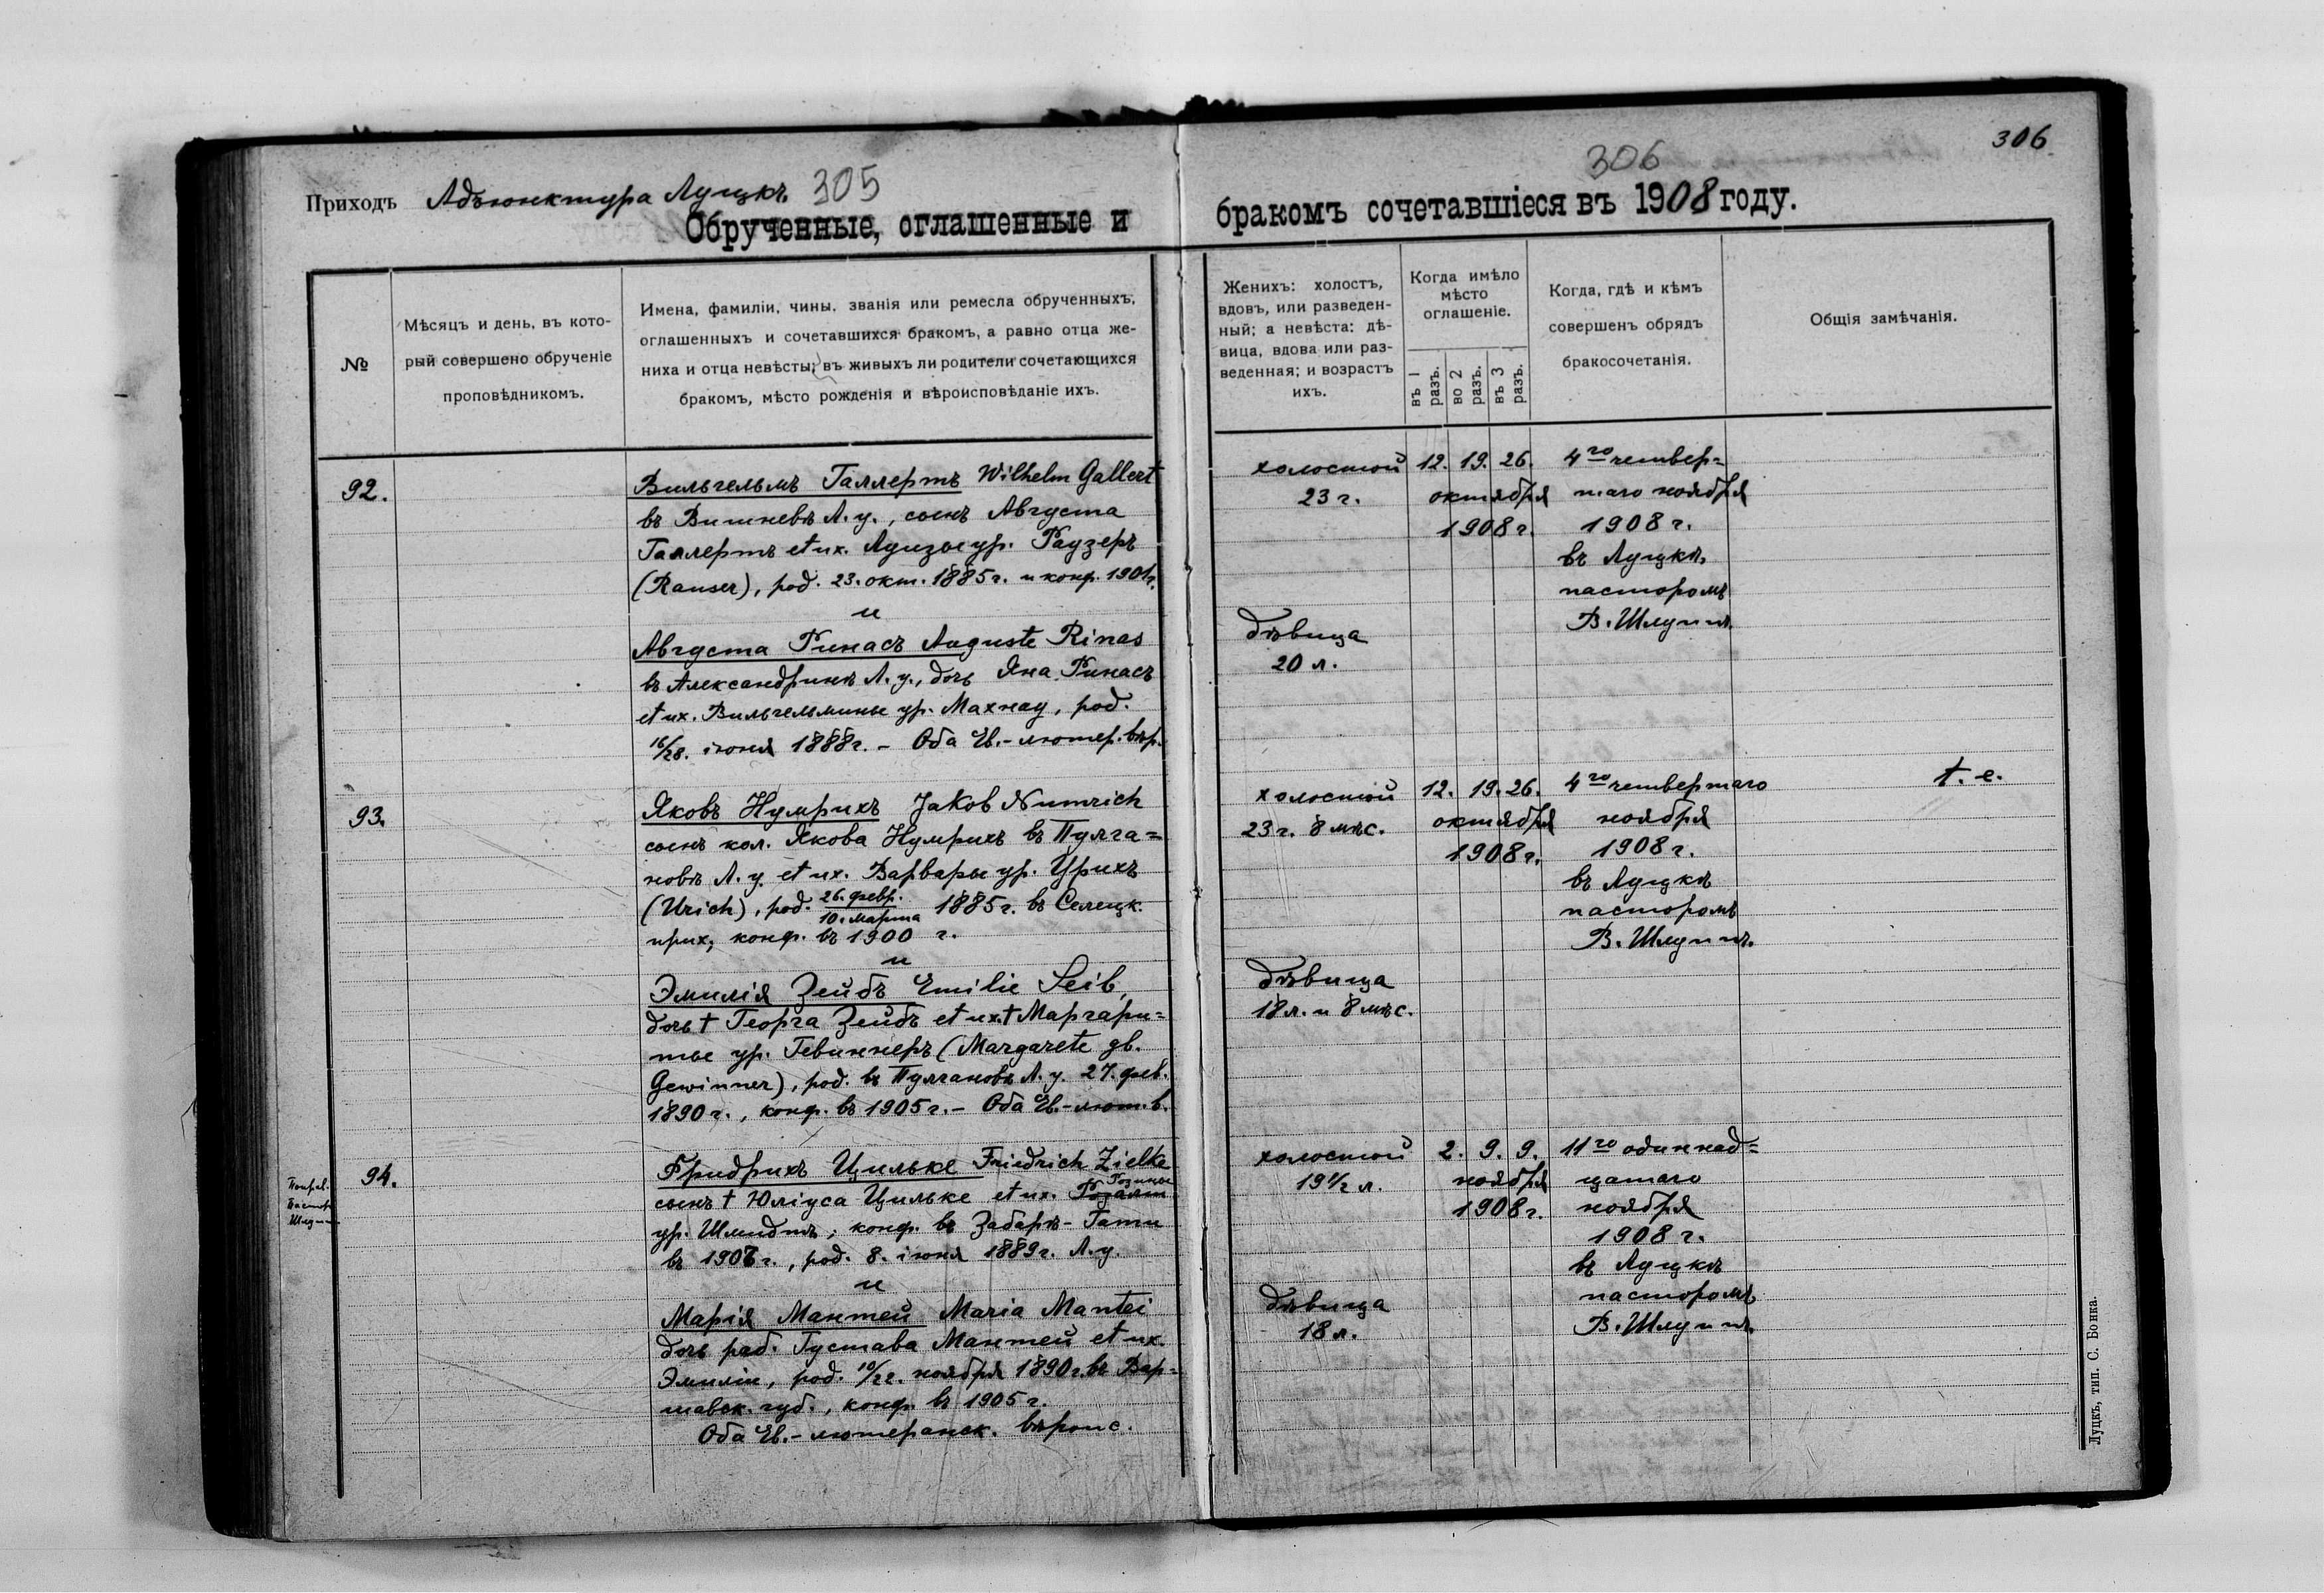 306
306
Приходъ Адъюнктура Луцкъ 305
Обрученные, оглашенные и бракомъ сочетавшіеся въ 1908 году.
№
Мѣсяцъ и день, въ кото-
рый совершено обрученіе
проповѣдникомъ.
Имена, фамиліи, чины, званія или ремесла обрученныхъ,
оглашенныхъ и сочетавшихся бракомъ, а равно отца же-
ниха и отца невѣсты; въ живыхъ ли родители сочетающихся
бракомъ, мѣсто рожденія и вѣроисповѣданіе ихъ.
Женихъ: холостъ,
вдовъ, или разведен-
ный; а невѣста: дѣ-
вица, вдова или раз-
веденная; и возрастъ
ихъ.
Когда имѣло
мѣсто
оглашеніе.
въ 1 разъ.
во 2 разъ.
въ 3 разъ.
Когда, гдѣ и кѣмъ
совершенъ обрядъ
бракосочетанія.
Общія замѣчанія.
92.
Вильгельмъ Галлертъ Wilhelm Gallert
въ Вишневѣ Л. у., сынъ Августа
Галлертъ et ux. Луизы ур. Раузеръ
(Rauser), род. 23. окт. 1885 г. и конф. 1901 г.
и
Августа Ринасъ Auguste Rinas
въ Александринѣ Л. у., дочь Яна Ринасъ
et ux. Вильгельмины ур. Махнау, род.
16/28. іюня 1888 г. – Оба Ев.-лютер. вѣр.
холостой
23 г.
дѣвица
20 л.
12. 19. 26.
октября
1908 г.
4го четвер=
таго ноября
1908 г.
въ Луцкѣ,
пасторомъ
В. Шлуппъ.
93.
Яковъ Нумрихъ Jakob Numrich
сынъ кол. Якова Нумрихъ въ Пулга=
новѣ Л. у. et ux. Варвары ур. Урихъ
(Urich), род. 26. февр./10. марта 1885 г. въ Селецк.
прих; конф. въ 1900 г.
и
Эмилія Зейбъ Emilie Seib,
дочь † Георга Зейбъ et ux † Маргари=
ты ур. Гевиннеръ (Margarete gb.
Gewinner), род. въ Пулгановѣ Л. у. 27. фев.
1890 г., конф. въ 1905 г. – Оба Ев.-лют. в.
холостой
23 г. 8 мѣс.
дѣвица
18 л. и 8 мѣс.
12. 19. 26.
октября
1908 г.
4го четвертаго
ноября
1908 г.
въ Луцкѣ
пасторомъ
В. Шлуппъ.
t. e.
94.
Фридрихъ Цильке Friedrich Zielke
Розины
сынъ † Юліуса Цильке et ux.
ур. Шмидтъ; конф. въ Забарѣ-Гати
въ 1907 г., род. 8. іюня 1889 г. Л. у.
и
Марія Мантей Maria Mantei
дочь раб. Густава Мантей et ux.
Эмиліи, род. 10/22. ноября 1890 г. въ Вар=
шавск. губ., конф. въ 1905 г.
Оба Ев.-лютеранск. вѣроис.
холостой
19 1/2 л.
дѣвица
18 л.
2. 9. 9.
ноября
1908 г.
11го одиннад=
цатаго
ноября
1908 г.
въ Луцкѣ
пасторомъ
В. Шлуппъ.
Луцкъ, тип. С. Бонка.